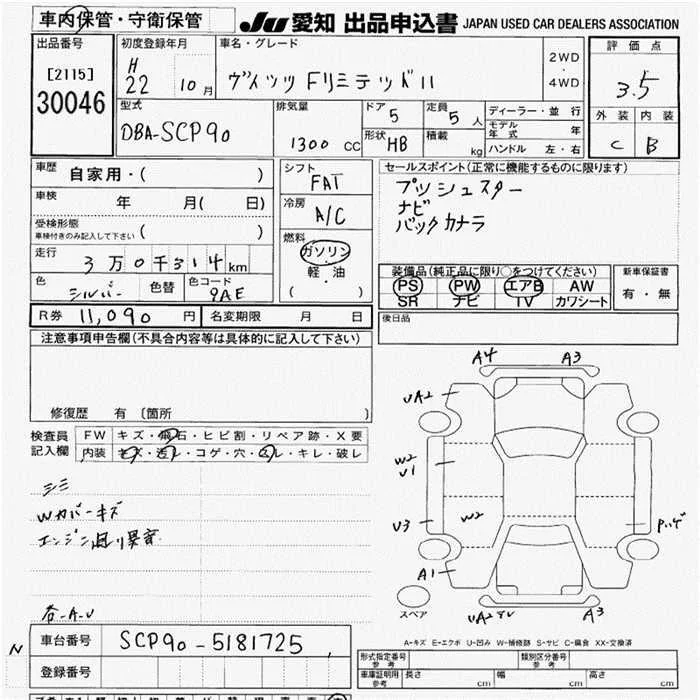 車内保管・守衛保管
JU 愛知 出品申込書 JAPAN USED CAR DEALERS ASSOCIATION
出品番号
[2115]
30046
初度登録年月
H
22 10 月
車名・グレード
ヴィッツ FリミテッドII
2WD
・
4WD
評価点
3.5
外装 内装
C B
型式
DBA-SCP90
排気量
1300 CC
ドア
5
形状 HB
定員
5 人
積載
kg
ディーラー・並行
モデル年式 年
ハンドル 左・右
車歴
自家用・( )
車検
年 月( 日)
受検形態
車検付きのみ記入して下さい ( )
走行
3万0千314km
色
シルバー
色替
色コード
9AE
シフト
FAT
冷房
A/C
燃料
ガソリン
軽・油
( )
セールスポイント(正常に機能するものに限ります)
プッシュスター
ナビ
バックカメラ
装備品(純正品に限り○をつけてください)
PS PW エアB AW
SR ナビ TV カワシート
新車保証書
有・無
R券 11,090 円
名変期限 月 日
後日品
注意事項申告欄(不具合内容等は具体的に記入して下さい)
修復歴 有 〔箇所 〕
検査員
記入欄
FW キズ・飛石・ヒビ割・リペア跡・X要
内装 キズ・汚レ・コゲ・穴・スレ・キレ・破レ
シミ
Wカバーキズ
エンジン廻り異音
各-A-U
A4 A3
UA2
W2
U1
U3
W2
A1
UA2
A3
スペア
A-キズ E-エクボ U-凹み W-補修跡 S-サビ C-腐食 XX-交換済
N
車台番号 SCP90-5181725
登録番号
型式指定番号
参考
類別区分番号
参考
車庫証明用
参考
長さ cm 幅 cm 高さ cm